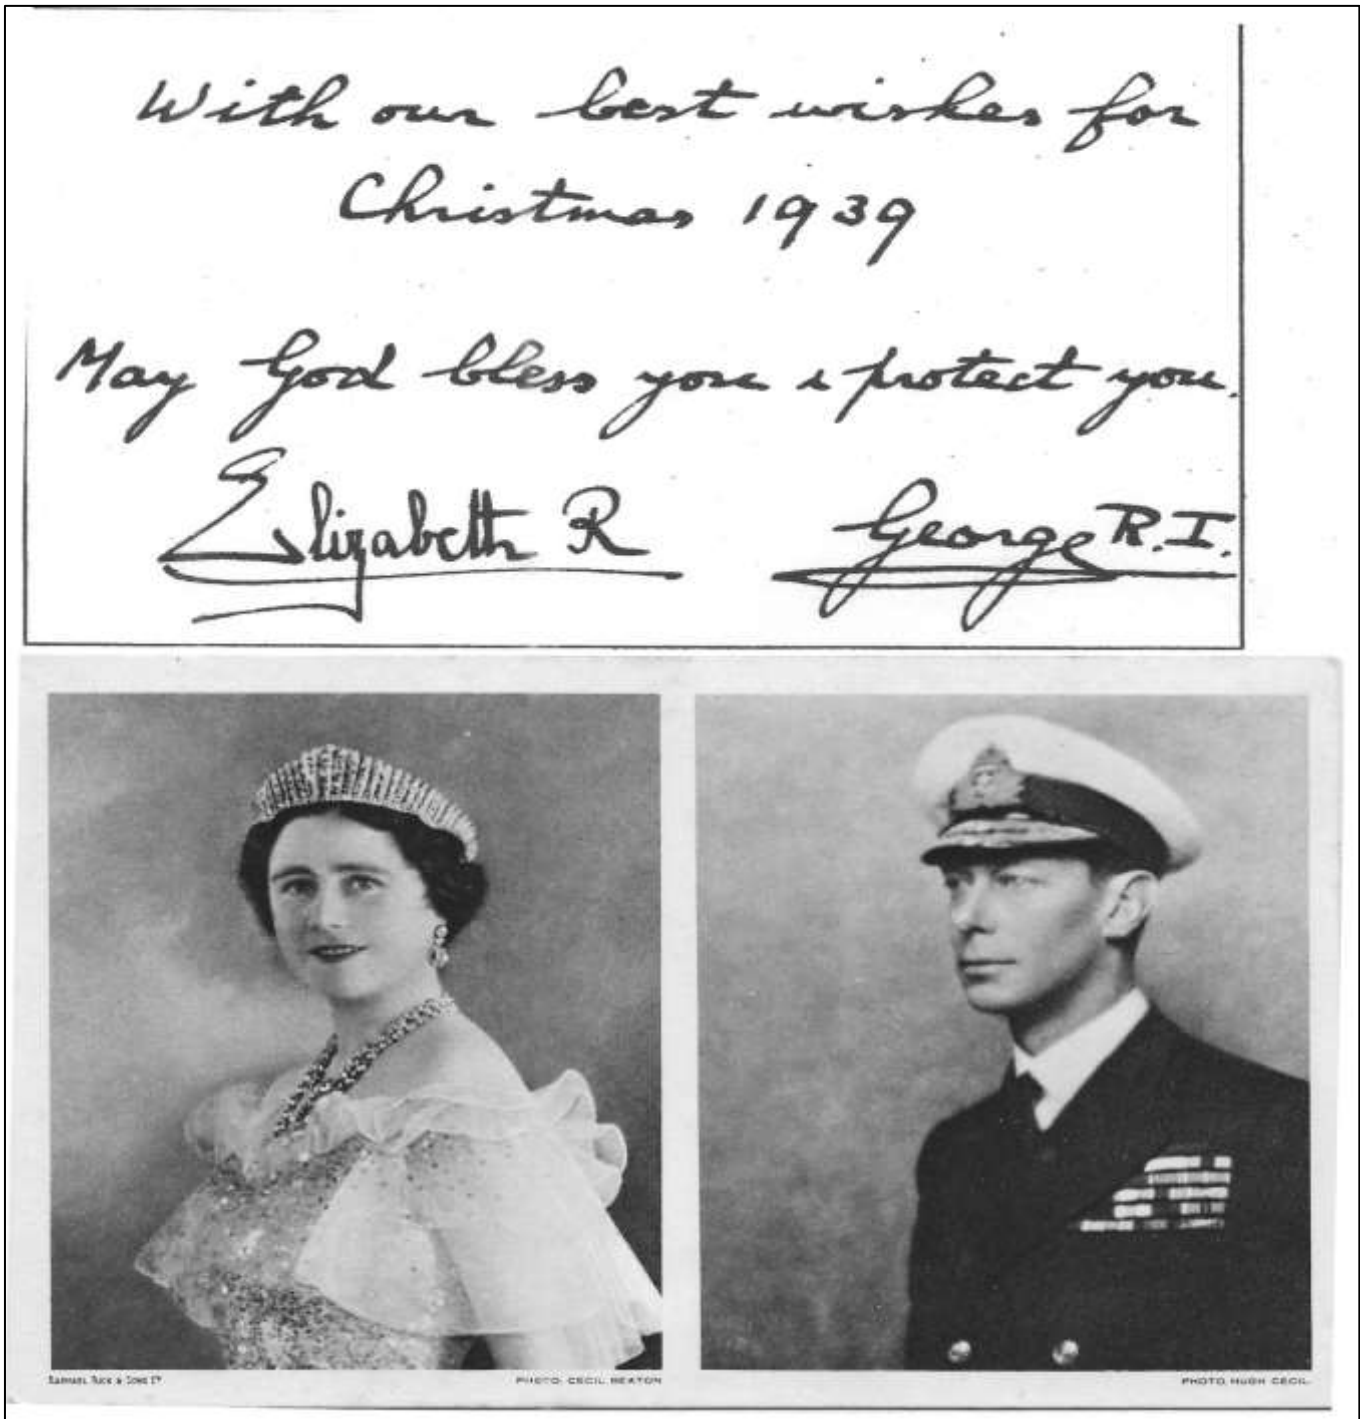 With our best wishes for
Christmas 1939
May God bless you & protect you.
Elizabeth R
George R.I.
RAPHAEL TUCK & SONS LTD
PHOTO. CECIL BEATON
PHOTO. HUGH CECIL.